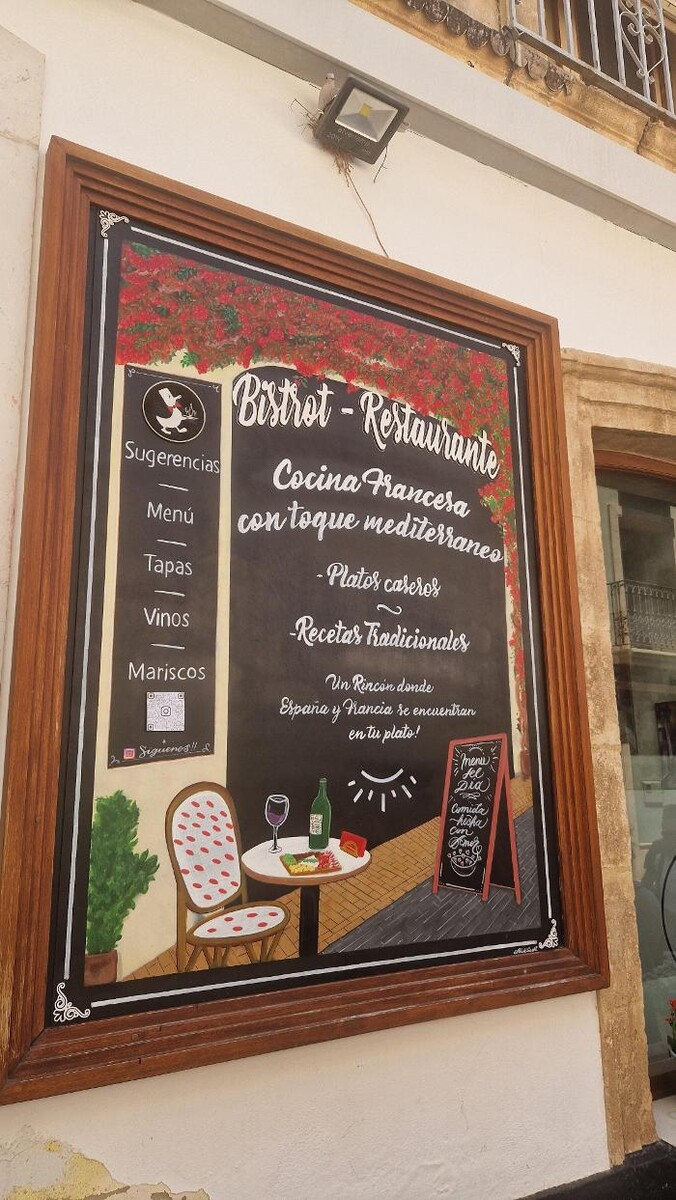 Sugerencias
Menú
Tapas
Vinos
Mariscos
Siguenos!!
Bistrot - Restaurante
Cocina Francesa
con toque mediterraneo
- Platos caseros
~
- Recetas Tradicionales
Un Rincón donde
España y Francia se encuentran
en tu plato!
Menu
del
Día
Comida
hecha
con